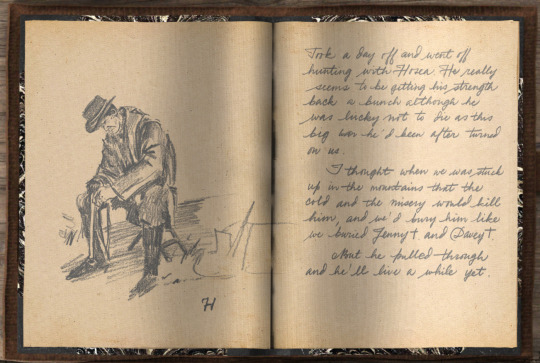 H
Took a day off and went off
hunting with Hosea. He really
seems to be getting his strength
back a bunch although he
was lucky not to die as this
big one he'd been after turned
on us.
I thought when we was stuck
up in the mountains that the
cold and the misery would kill
him, and we'd bury him like
we buried Jenny† and Davey†.
But he pulled through
and he'll live a while yet.